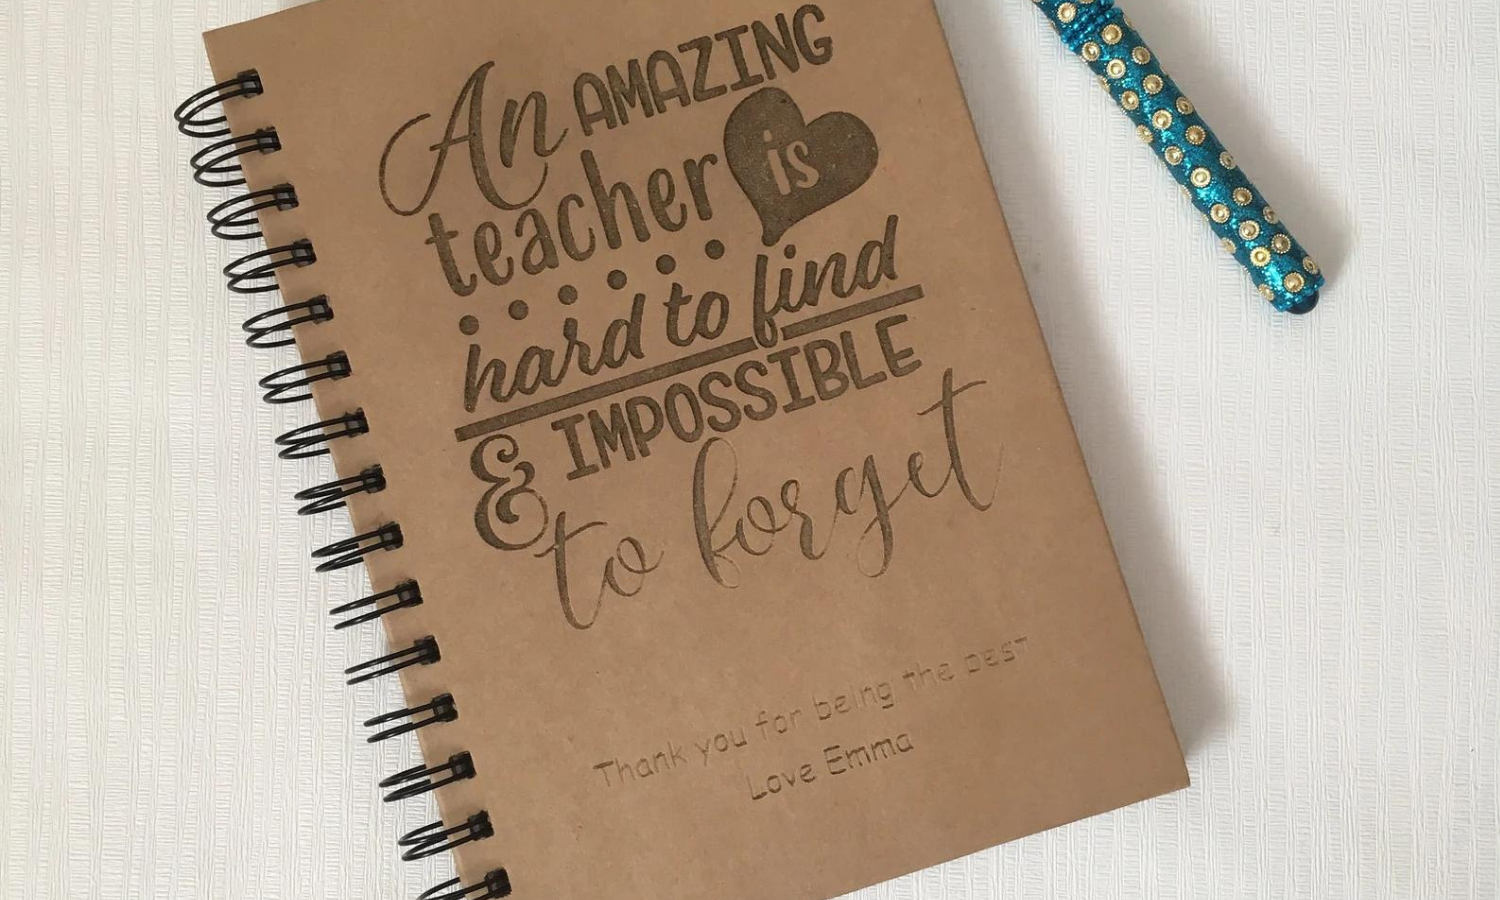 An AMAZING
teacher is
hard to find
& IMPOSSIBLE
to forget
Thank you for being the best
Love Emma